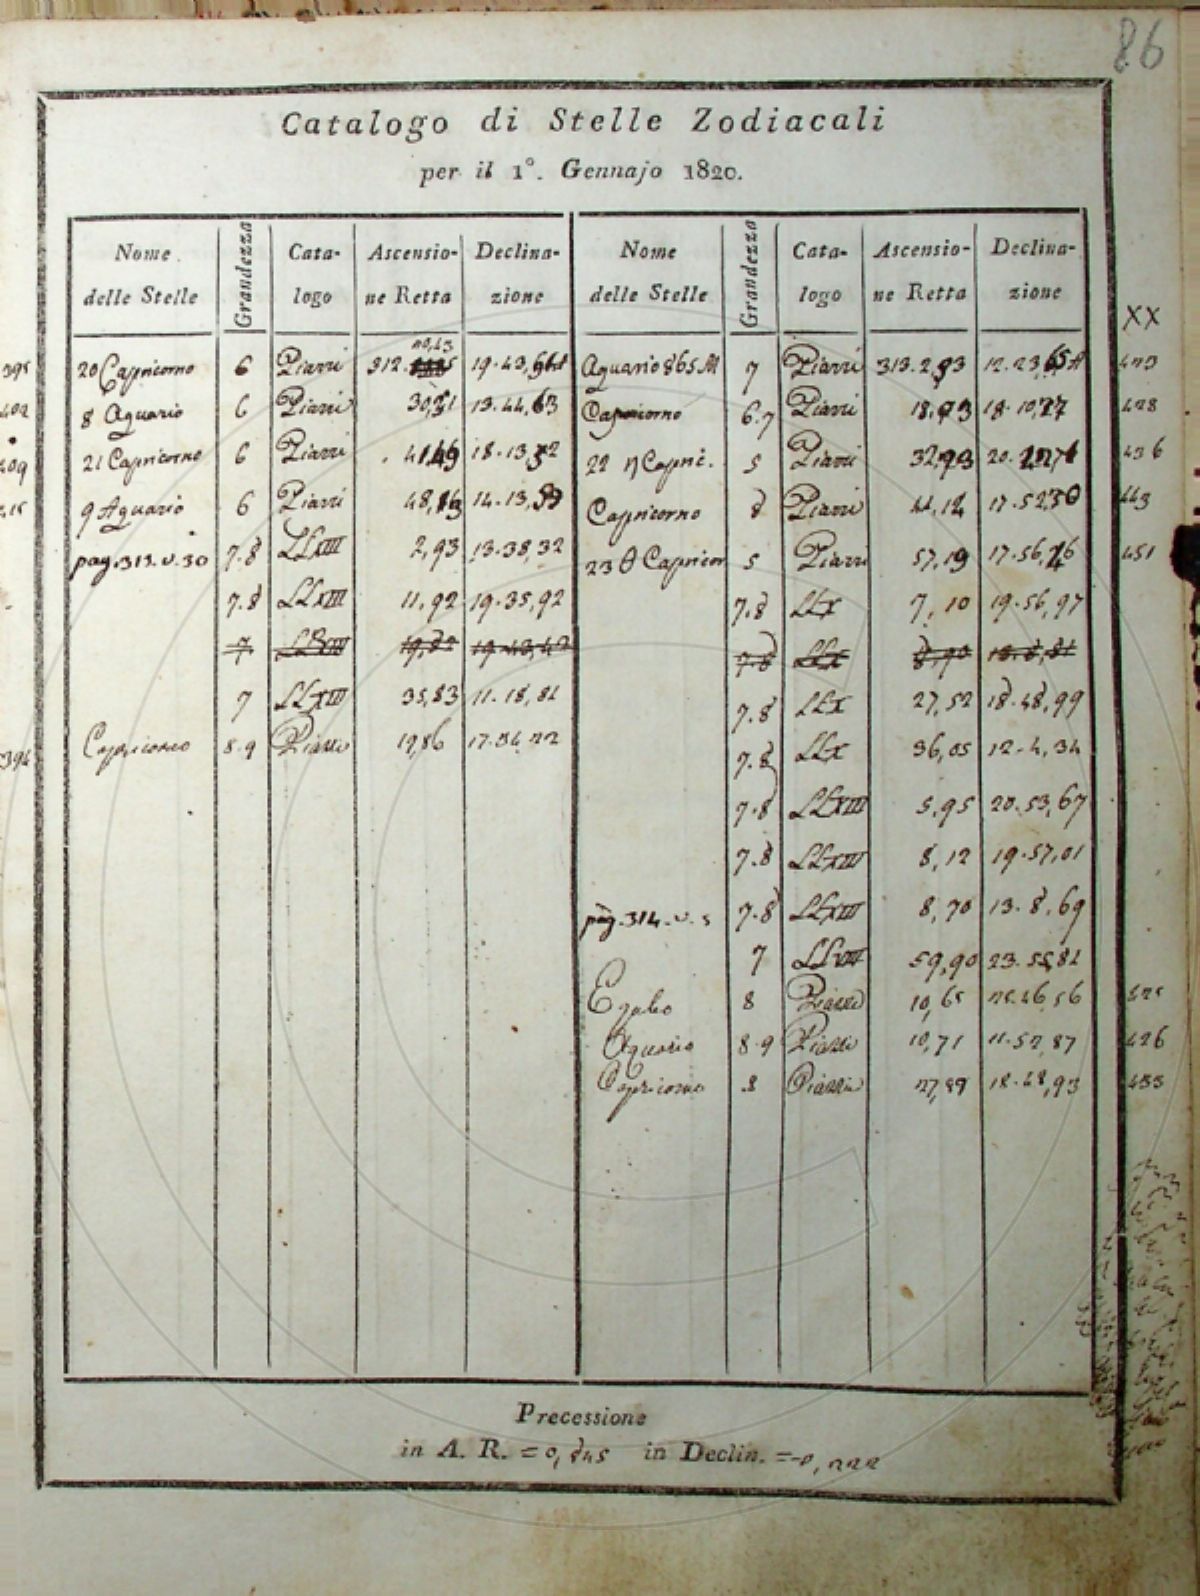 86
Catalogo di Stelle Zodiacali
per il 1°. Gennajo 1820.
Nome delle Stelle Grandezza Catalogo Ascensione Retta Declinazione Nome delle Stelle Grandezza Catalogo Ascensione Retta Declinazione
XX
395 20 Capricorno 6 Piazzi 312. 19.43, Aquario 865 M 7 Piazzi 313. 12.23,65 A
402 8 Aquario 6 Piazzi 13.44,63 Capricorno 6.7 Piazzi 18. 18.10,27 428
409 21 Capricorno 6 Piazzi 41,49 18.13, 22 η Capric. 5 Piazzi 32,93 20. 436
9 Aquario 6 Piazzi 48, 14.13, Capricorno 8 Piazzi 44,14 17.52,30 443
pag. 313. v. 30 7.8 LLXIII 2,93 13.38,32 23 θ Capricor 5 Piazzi 57,19 17.56, 451
7.8 LLXIII 11,92 19.35,92 7.8 LLX 7,10 19.56,97
7 19,82 19.43,42 7.8 LLX 8,90 18.8,81
7 LLXIII 35,83 11.18,81 7.8 LLX 27,52 18.48,99
394 Capricorno 8.9 Piazzi 19,86 17.54,22 7.8 LLX 36,05 12.4,34
7.8 LLXIII 5,95 20.53,67
7.8 LLXIII 8,12 19.57,01
pag. 314. v. 5 7.8 LLXIII 8,70 13.8,69
7 LLVIII 59,90 23.55,81
8 Piazzi 10,65 425
Aquario 8.9 Piazzi 10,71 11.52,87 426
Capricorno 8 Piazzi 27,89 18.48,93 433
Precessione
in A. R. = 0,845 in Declin. = -0,222